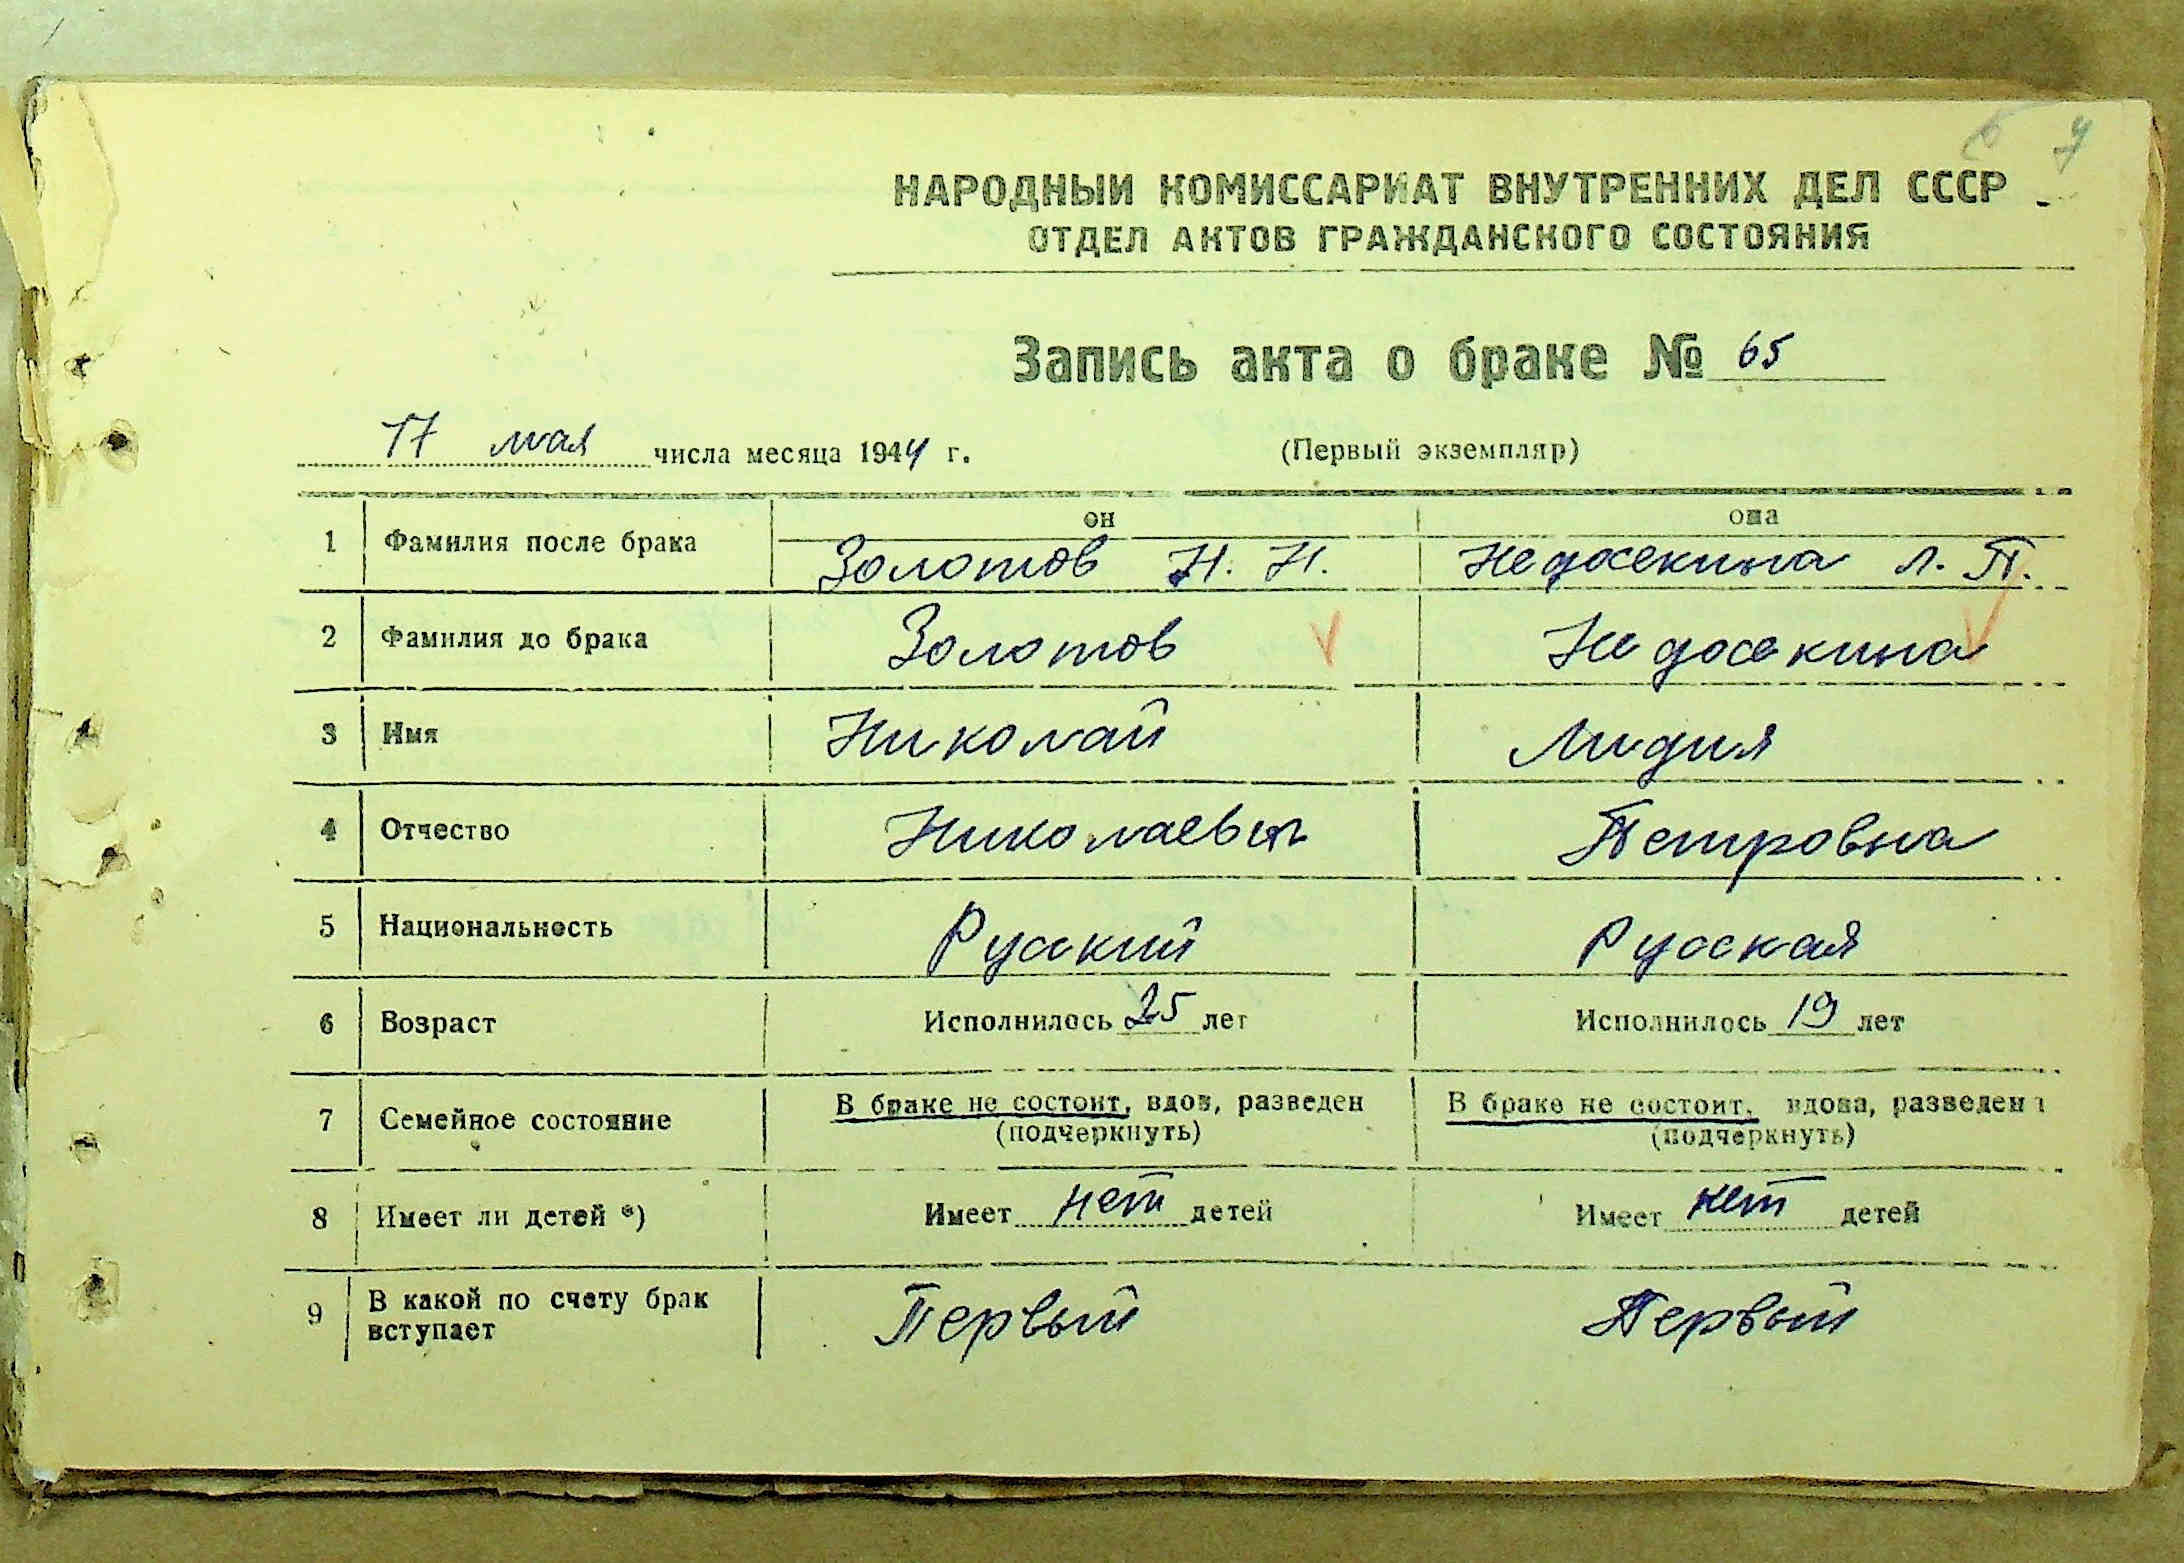 7
НАРОДНЫЙ КОМИССАРИАТ ВНУТРЕННИХ ДЕЛ СССР
ОТДЕЛ АКТОВ ГРАЖДАНСКОГО СОСТОЯНИЯ
Запись акта о браке № 65
17 мая числа месяца 1944 г. (Первый экземпляр)
он она
1 Фамилия после брака Золотов Н. Н. Недосекина Л. П.
2 Фамилия до брака Золотов Недосекина
3 Имя Николай Лидия
4 Отчество Николаевич Петровна
5 Национальность Русский Русская
6 Возраст Исполнилось 25 лет Исполнилось 19 лет
7 Семейное состояние В браке не состоит, вдов, разведен В браке не состоит, вдова, разведена
(подчеркнуть) (подчеркнуть)
8 Имеет ли детей *) Имеет нет детей Имеет нет детей
9 В какой по счету брак
вступает Первый Первый